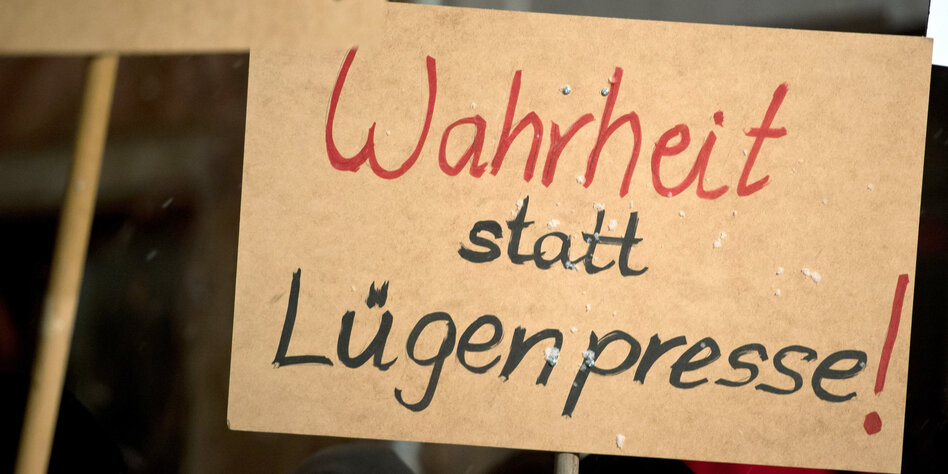 Wahrheit
statt
Lügenpresse!